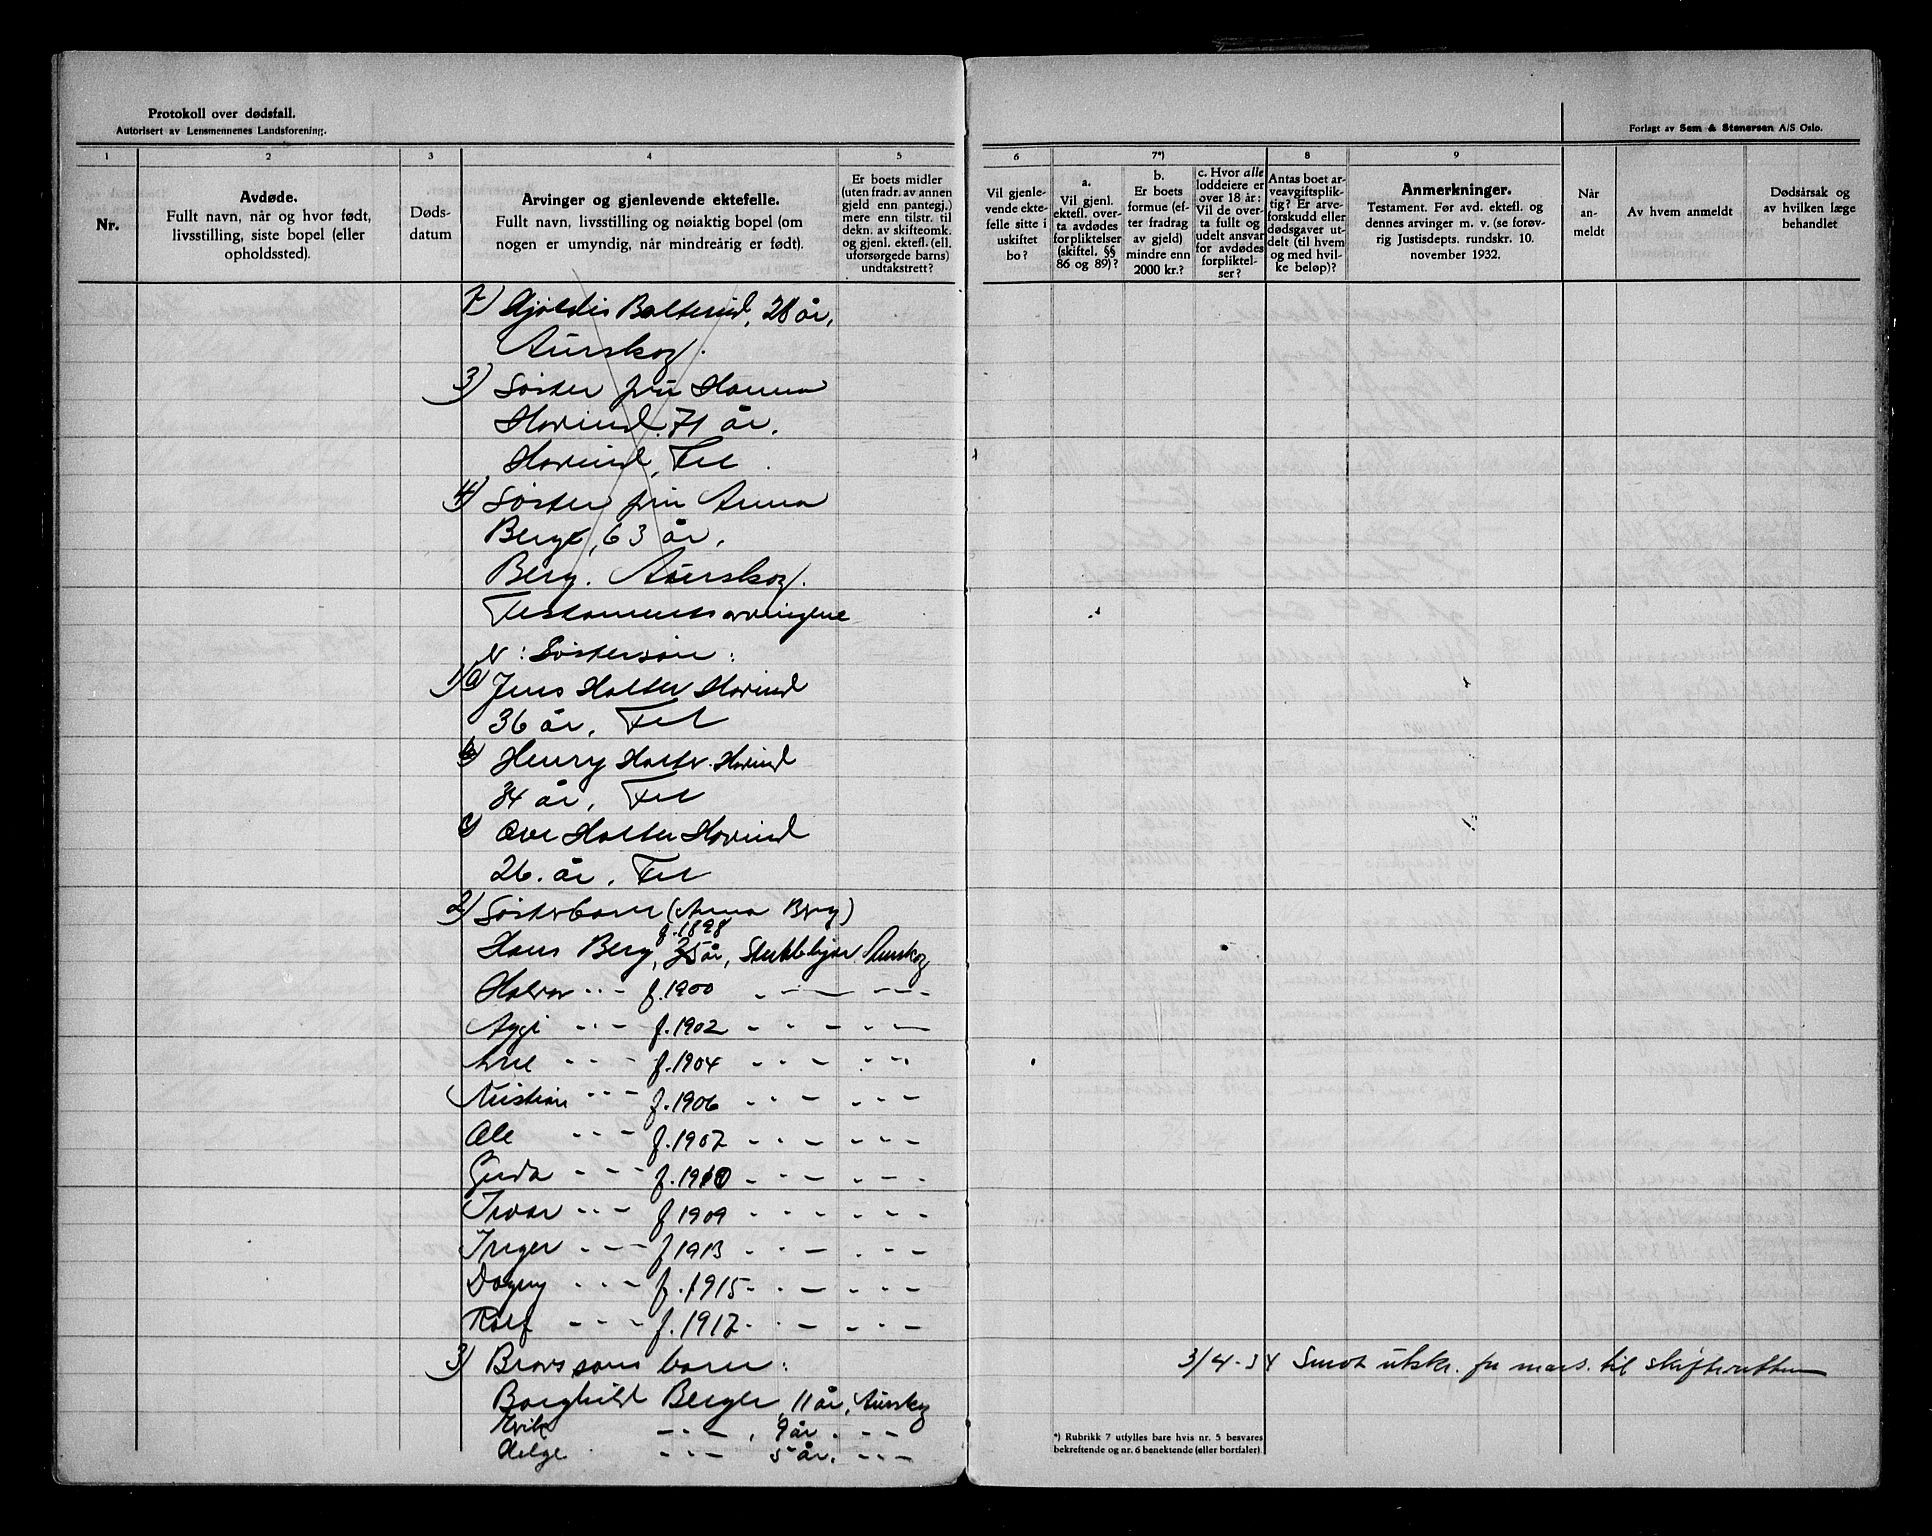 Protokoll over dødsfall.
Autorisert av Lensmennenes Landsforening.
1
2
3
4
5
Nr.
Avdøde.
Fullt navn, når og hvor født,
livsstilling, siste bopel (eller
opholdssted).
Døds-
datum
Arvinger og gjenlevende ektefelle.
Fullt navn, livsstilling og nøiaktig bopel (om
nogen er umyndig, når mindreårig er født).
Er boets midler
(uten fradr. av annen
gjeld enn pantegj.)
mere enn tilstr. til
dekn. av skifteomk.
og gjenl. ektefl. (ell.
uforsørgede barns)
undtakstrett?
28 år,
Aurskog.
3) Søster fru Hanna
Horind. 71 år.
Horind, Fet
4) Søster fru Anna
Berg, 63 år,
Berg. Aurskog.
Testamentsarvingene
er: Søstersøn:
1) a) Jens Holter Horind
36 år, Fet
b) Henry Holter Horind
34 år, Fet
c) Ove Holter Horind
26 år, Fet
2) Søsterbarn (Anna Berg)
f. 1898
Hans Berg, 35 år, Aurskog
Halvor -"- f. 1900 - " -
-"- f. 1902 - " -
-"- f. 1904 - " -
Kristian -"- f. 1906 - " -
Ole -"- f. 1907 - " -
-"- f. 1910 - " -
Ivar -"- f. 1909 - " -
Inger -"- f. 1913 - " -
Dagny -"- f. 1915 - " -
Rolf -"- f. 1917 - " -
3) Brors søns barn:
Borghild Berger, 11 år, Aurskog
Erik -"-, 9 år. -"-
Helge -"- 5 år. -"-
Forlagt av Sem & Stenersen A/S Oslo.
6
7*)
8
9
Vil gjenle-
vende ekte-
felle sitte i
uskiftet
bo?
a.
Vil gjenl.
ektefl. over-
ta avdødes
forpliktelser
(skiftel. §§
86 og 89)?
b.
Er boets
formue (ef-
ter fradrag
av gjeld)
mindre enn
2000 kr.?
c. Hvor alle
loddeiere er
over 18 år:
Vil de over-
ta fullt og
udelt ansvar
for avdødes
forpliktel-
ser?
Antas boet ar-
veavgiftsplik-
tig? Er arve-
forskudd eller
dødsgaver ut-
delt (til hvem
og med hvil-
ke beløp)?
Anmerkninger.
Testament. Før avd. ektefl. og
dennes arvinger m. v. (se forøv-
rig Justisdepts. rundskr. 10.
november 1932.
Når
an-
meldt
Av hvem anmeldt
Dødsårsak og
av hvilken læge
behandlet
3/4-34 Sendt utskr. for mars til skifteretten
*) Rubrikk 7 utfylles bare hvis nr. 5 besvares
bekreftende og nr. 6 benektende (eller bortfaler).